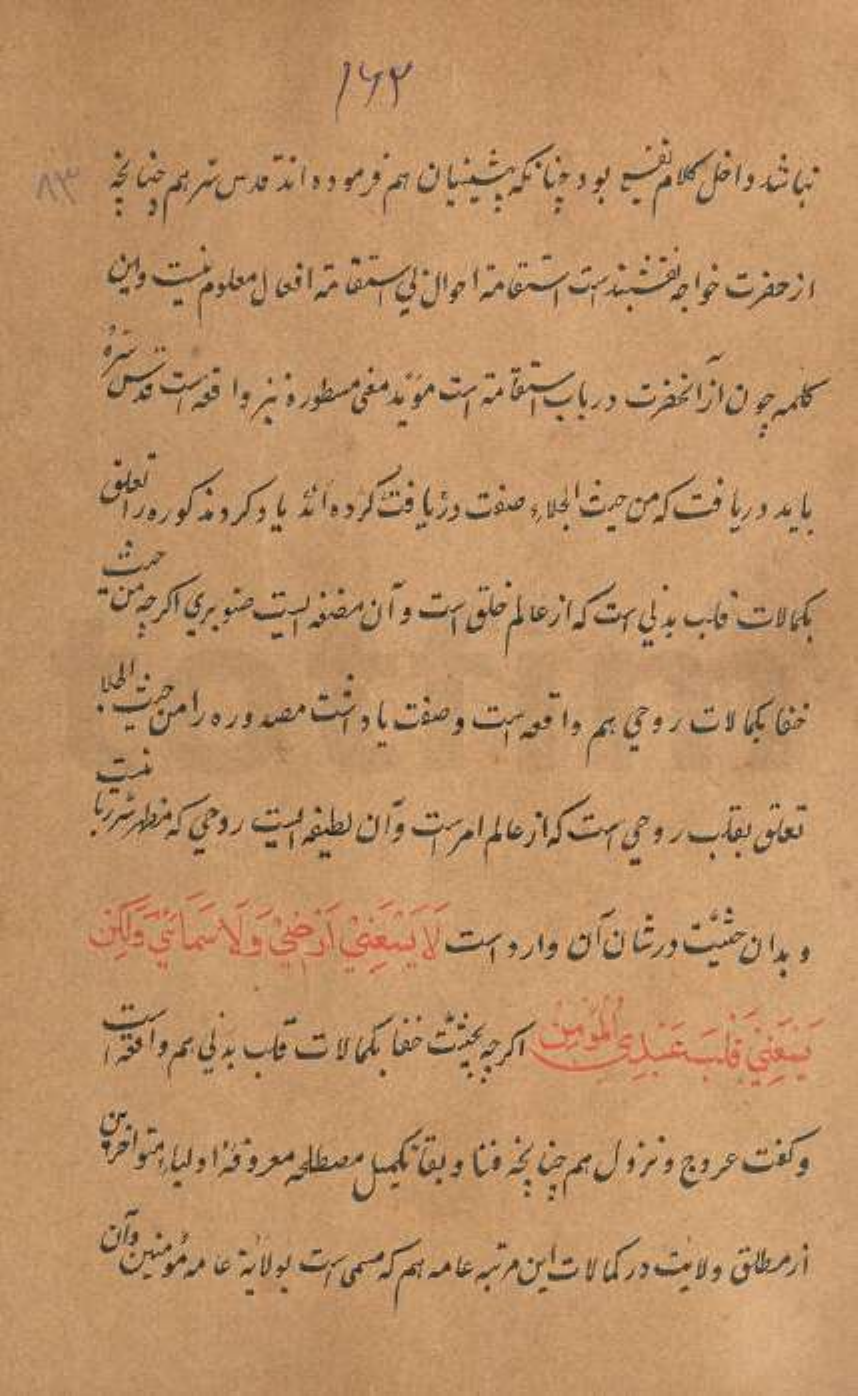 ۱۶۲
۸۳
نباشد داخل کلام نفیس بود چنانکه پیشینیان هم فرموده اند قدس سرهم چنانچه
از حضرت خواجه نقشبند است استقامة احوال بی استقامة افعال معلوم نیست واین
کلمه چون از آنحضرت در باب استقامة است مؤید معنی مسطوره نیز واقعه است قدس سره
باید دریافت که من حیث الجلاء صفت دریافت کرده اند یاد کرد مذکوره را تعلق
بکمالات قلب بدنی است که از عالم خلق است و آن مضغه ایست صنوبری اگرچه من حیث
خفا بکمالات روحی هم واقعه است وصفت یاداشت مصدوره را من حیث الجلا
تعلق بقلب روحی است که از عالم امر است وآن لطیفه ایست روحی که مظهر سر ربا نیت
و بدان حیثیت درشان آن وارد است لَا يَسَعُنِي أَرْضِيْ وَلَا سَمَائِيْ وَلٰكِنْ
يَسَعُنِيْ قَلْبَ عَبْدِي الْمُؤمِنْ اگرچه بحیثیت خفا بکمالات قلب بدنی هم واقعه است
وکفت عروج ونزول هم چنانچه فنا و بقا تکمیل مصطلحه معروفهٔ اولیاء متواخرین
از مطلق ولایت در کمالات این مرتبه عامه هم که مسمی است بولایة عامه مؤمنین وآن